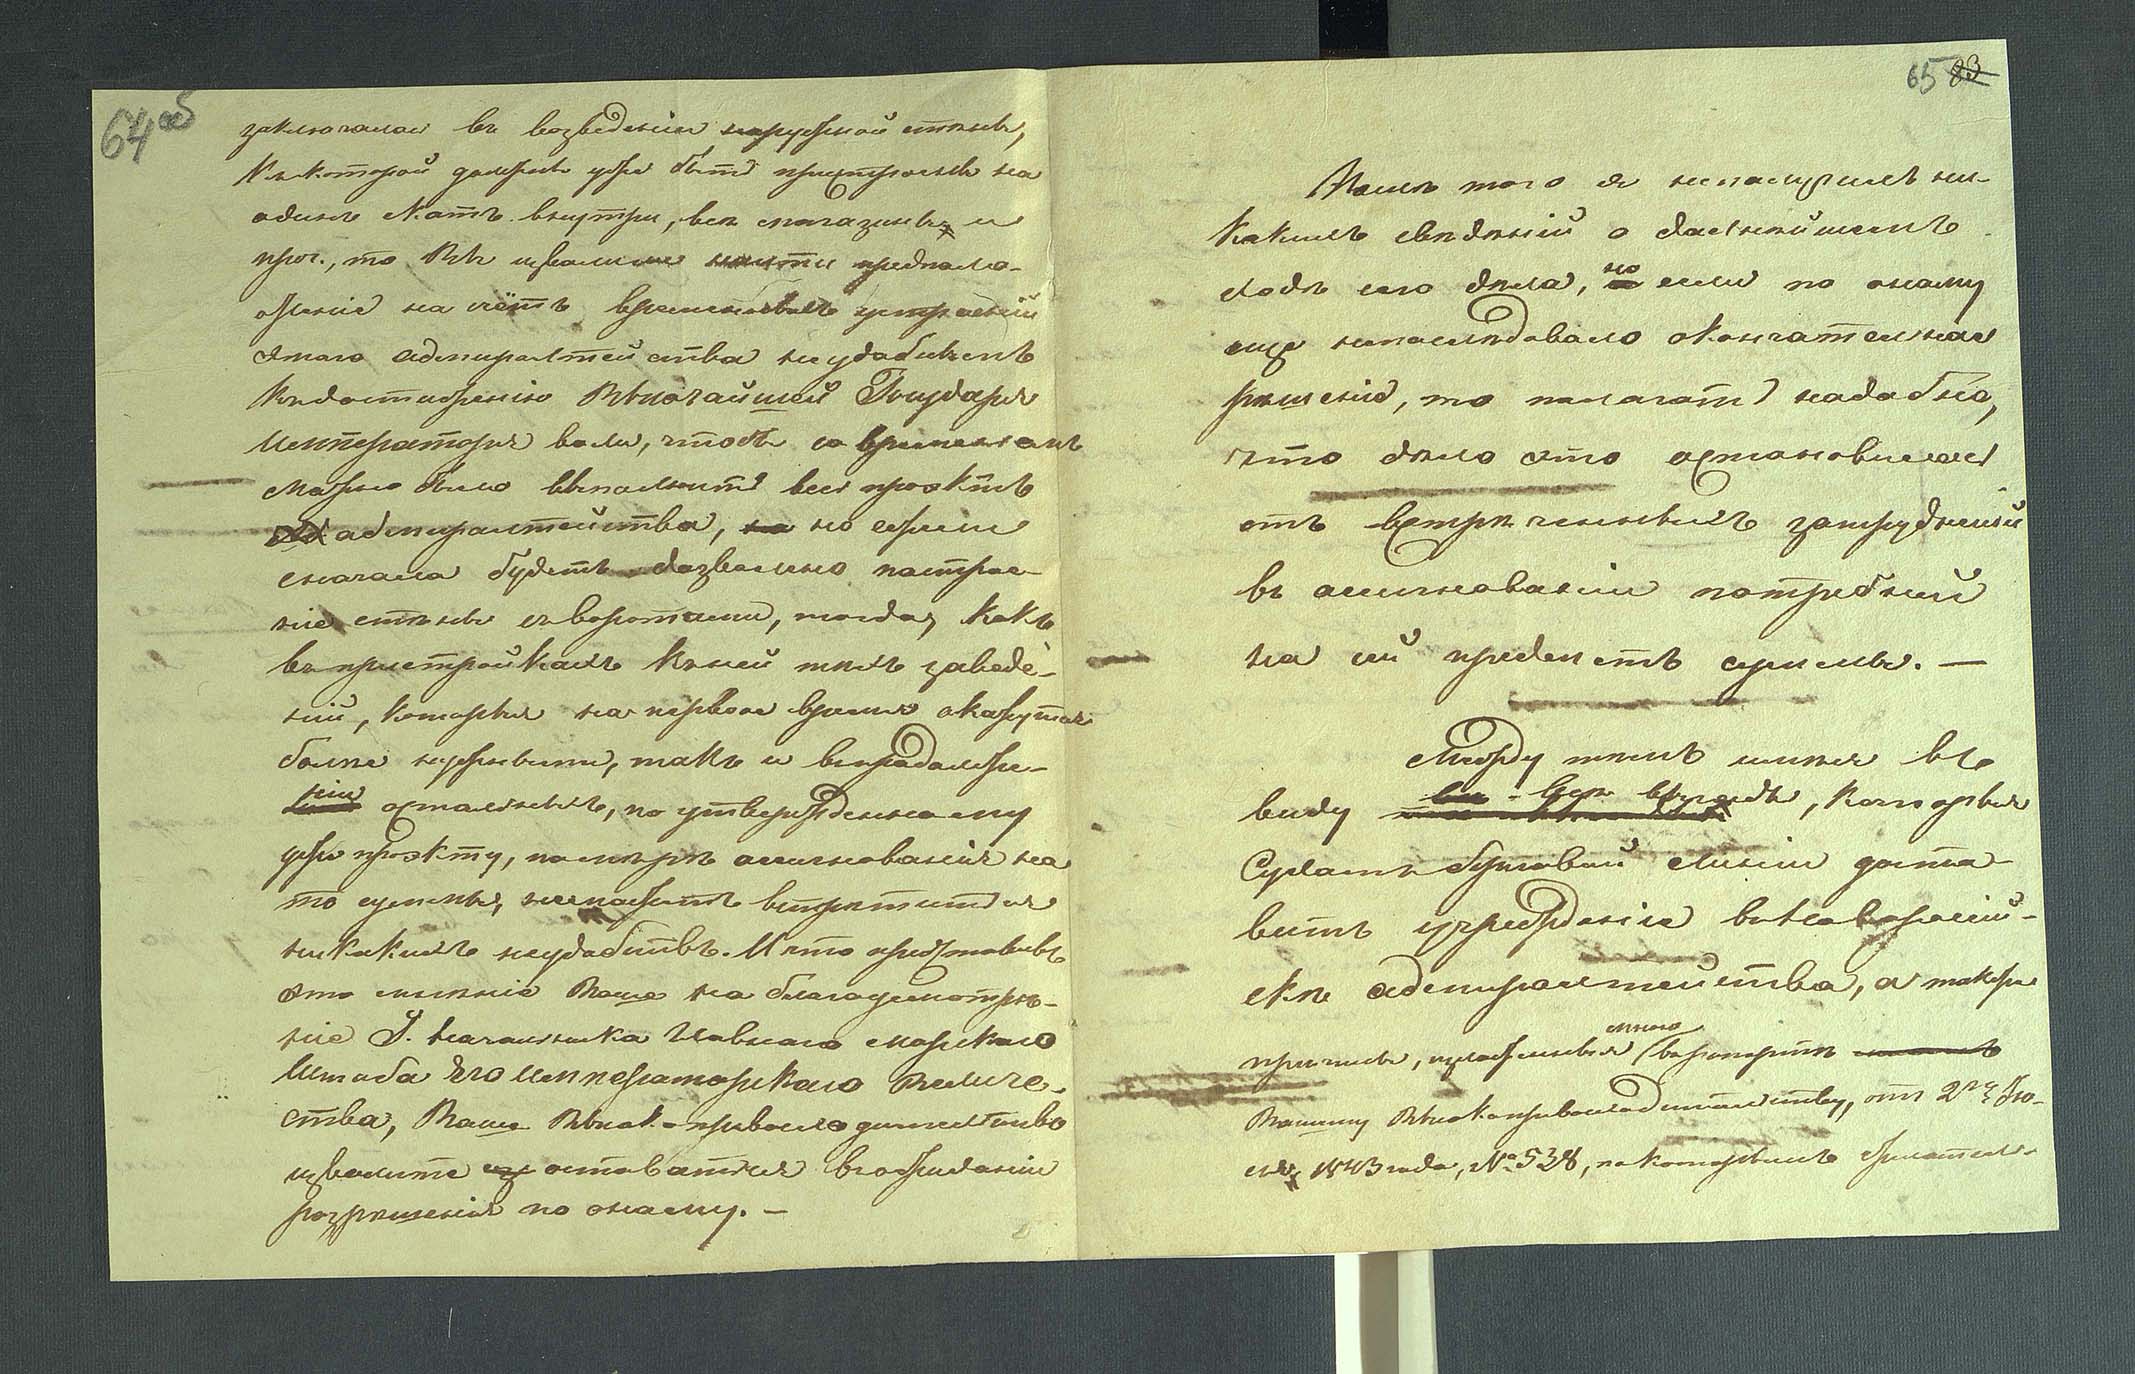 64 об
заключалось въ возведеніи наружной стѣны,
къ которой должны уже быть пристроены на
одинъ скатъ внутри, всѣ магазины и
проч., то Вы изволили найти предполо-
женіе на счётъ временныхъ устроеній
этого адмиралтейства неудобнымъ
къ достиженію Высочайшей Государя
Императора воли, чтобъ со временемъ
можно было выполнить весь проэктъ
адмиралтейства, но ежели
сначала будетъ дозволено построе-
ніе стѣны съ воротами, тогда, какъ
въ пристройкахъ къ ней тѣхъ заведе-
ній, которыя на первое время окажутся
болѣе нужными, такъ и въ продолже-
ніи остальныхъ, по утвержденному
уже проэкту, по мѣрѣ ассигнованія на
то суммъ, не можетъ встрѣтиться
никакихъ неудобствъ. И что представивъ
это мнѣніе Ваше на благоусмотрѣ-
ніе Г. Начальника Главнаго Морскаго
Штаба Его Императорскаго Величе-
ства, Ваше Высокопревосходительство
изволите оставаться въ ожиданіи
разрѣшенія по оному. —
65 83
Послѣ того я не получилъ ни-
какихъ свѣдѣній о дальнѣйшемъ
ходѣ сего дѣла, но если по оному
еще не послѣдовало окончательнаго
рѣшенія, то полагать надобно,
что дѣло это остановилось
отъ встрѣченныхъ затрудненій
въ ассигнованіи потребной
на сей предметъ суммы. —
Между тѣмъ имѣя въ
виду всѣ выгоды, которыя
Сухумъ береговой линіи доста-
витъ учрежденіе въ Новороссій-
скѣ адмиралтейства, а также
причины, изложенныя мною въ рапортѣ
Вашему Высокопревосходительству, отъ 2го Ію-
ля 1843 года, № 538, по которымъ желатель-